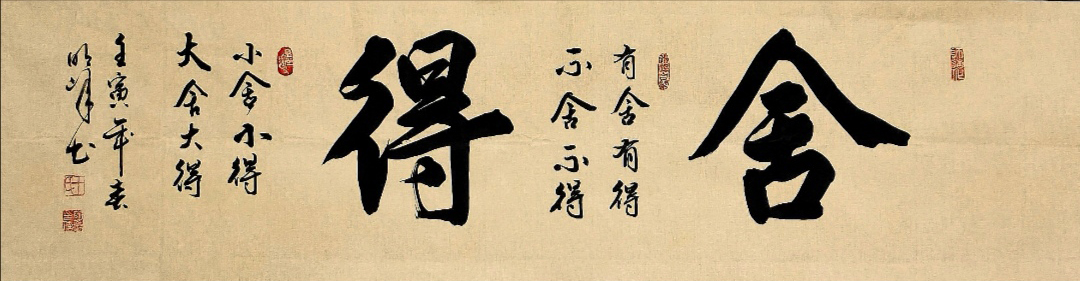 舍
有舍有得
不舍不得
得
小舍小得
大舍大得
壬寅年春
明峰书